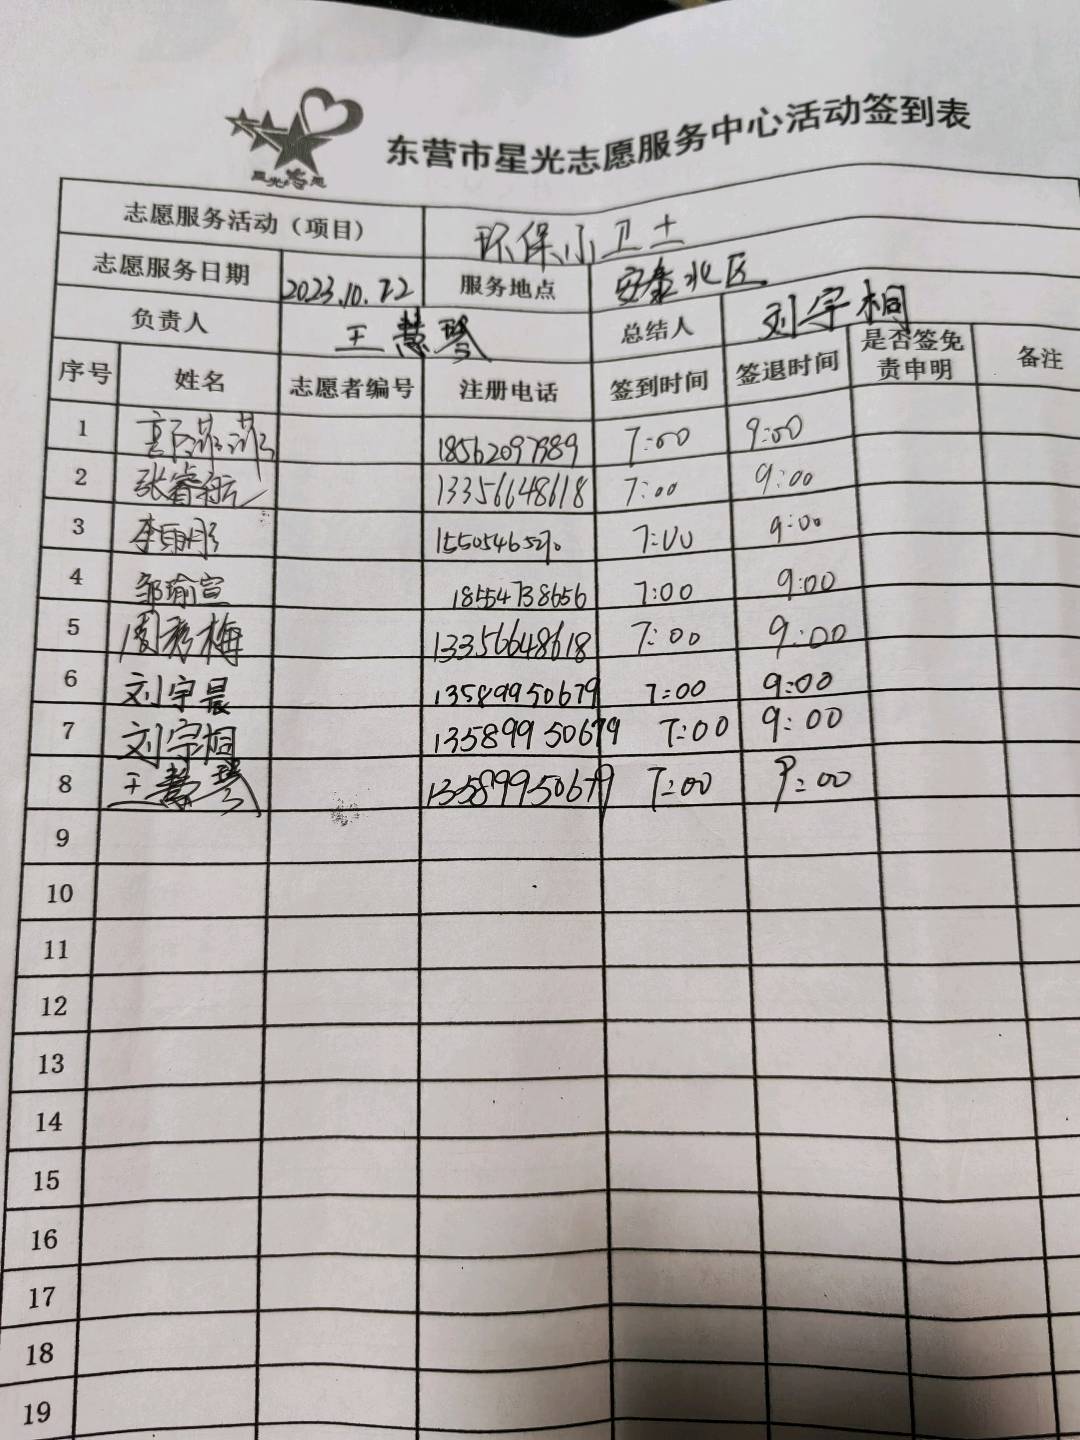 星光志愿
东营市星光志愿服务中心活动签到表
志愿服务活动（项目） 环保小卫士
志愿服务日期 2023.10.22 服务地点 安泰北区
负责人 王慧琴 总结人 刘宇桐
序号 姓名 志愿者编号 注册电话 签到时间 签退时间 是否签免责申明 备注
1 18562097989 7:00 9:00
2 张睿航 13356648618 7:00 9:00
3 李雨彤 15505465290 7:00 9:00
4 邹瑜宣 18554738656 7:00 9:00
5 周彩梅 13356648618 7:00 9:00
6 刘宇晨 13589950679 7:00 9:00
7 刘宇桐 13589950679 7:00 9:00
8 王慧琴 13589950679 7:00 9:00
9
10
11
12
13
14
15
16
17
18
19